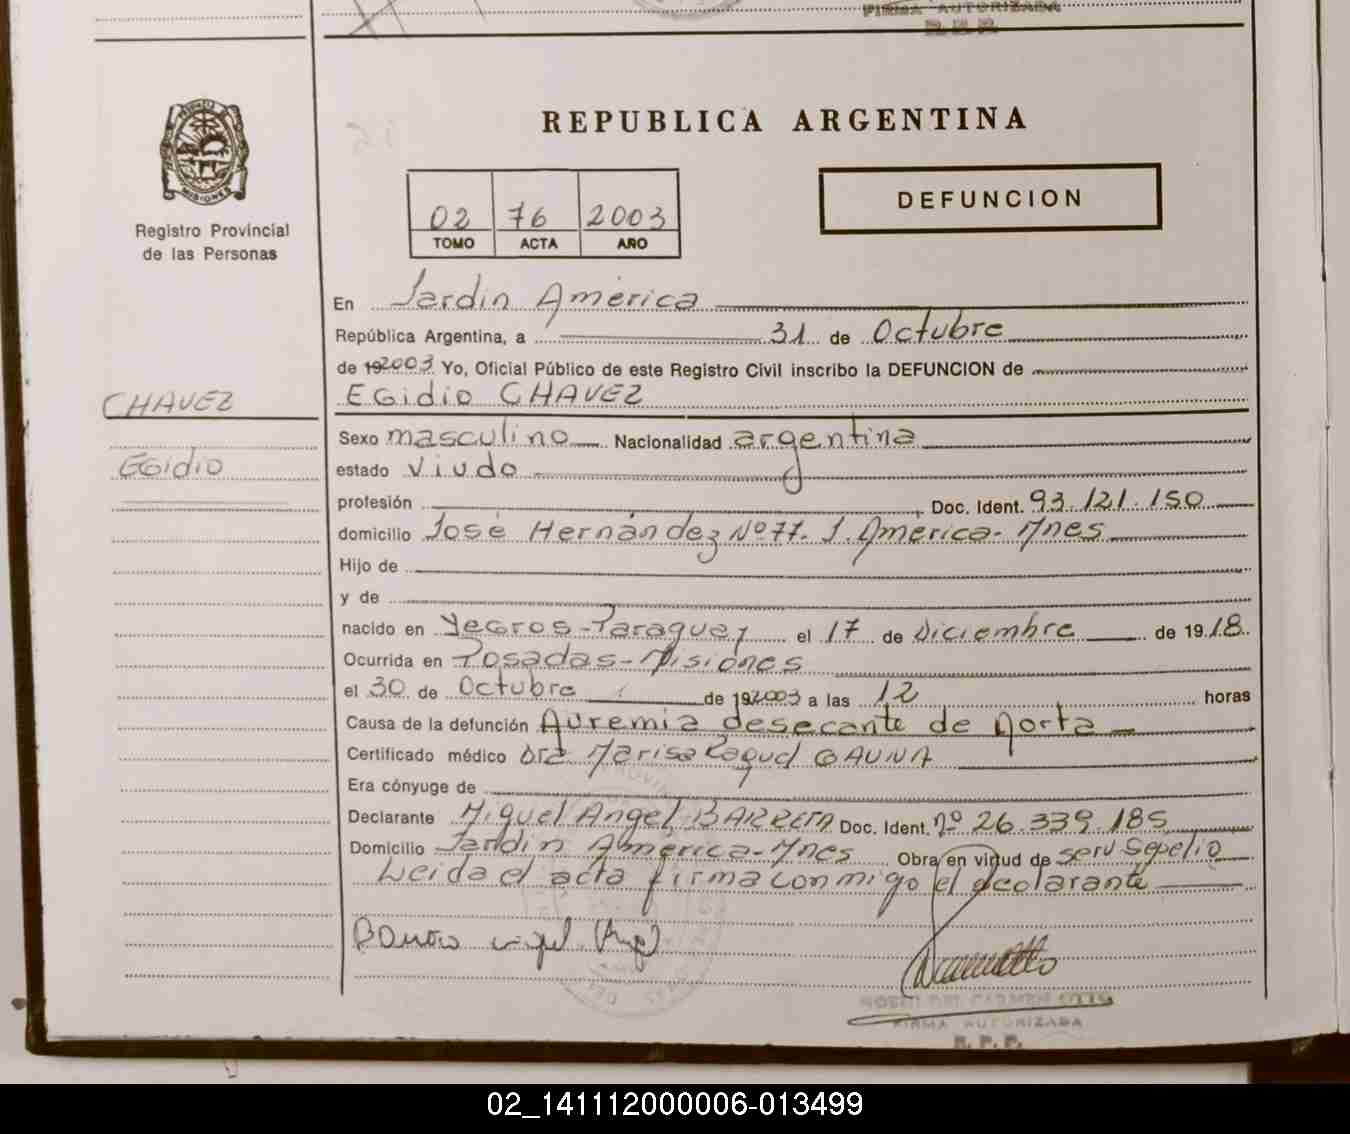 FIRMA AUTORIZADA
R.P.P.
MISIONES
Registro Provincial
de las Personas
CHAVEZ
EGidio
REPUBLICA ARGENTINA
02 76 2003
TOMO ACTA AÑO
DEFUNCION
En Jardin América
República Argentina, a 31 de Octubre
de 192003 Yo, Oficial Público de este Registro Civil inscribo la DEFUNCION de
EGidio CHAVEZ
Sexo masculino Nacionalidad argentina
estado Viudo
profesión Doc. Ident. 93.121.150
domicilio José Hernández Nº 77. J. América - Mnes
Hijo de
y de
nacido en Yegros - Paraguay el 17 de Diciembre de 1918
Ocurrida en Posadas - Misiones
el 30 de Octubre de 192003 a las 12 horas
Causa de la defunción Auremia desecante de Aorta
Certificado médico Dra Marisa Raquel GAUNA
Era cónyuge de
Declarante Miguel Angel BARRETA Doc. Ident. Nº 26.339.185
Domicilio Jardin América - Mnes Obra en virtud de serv Sepelio
Leida el acta firma conmigo el declarante
FIRMA AUTORIZADA
R.P.P.
02_141112000006-013499